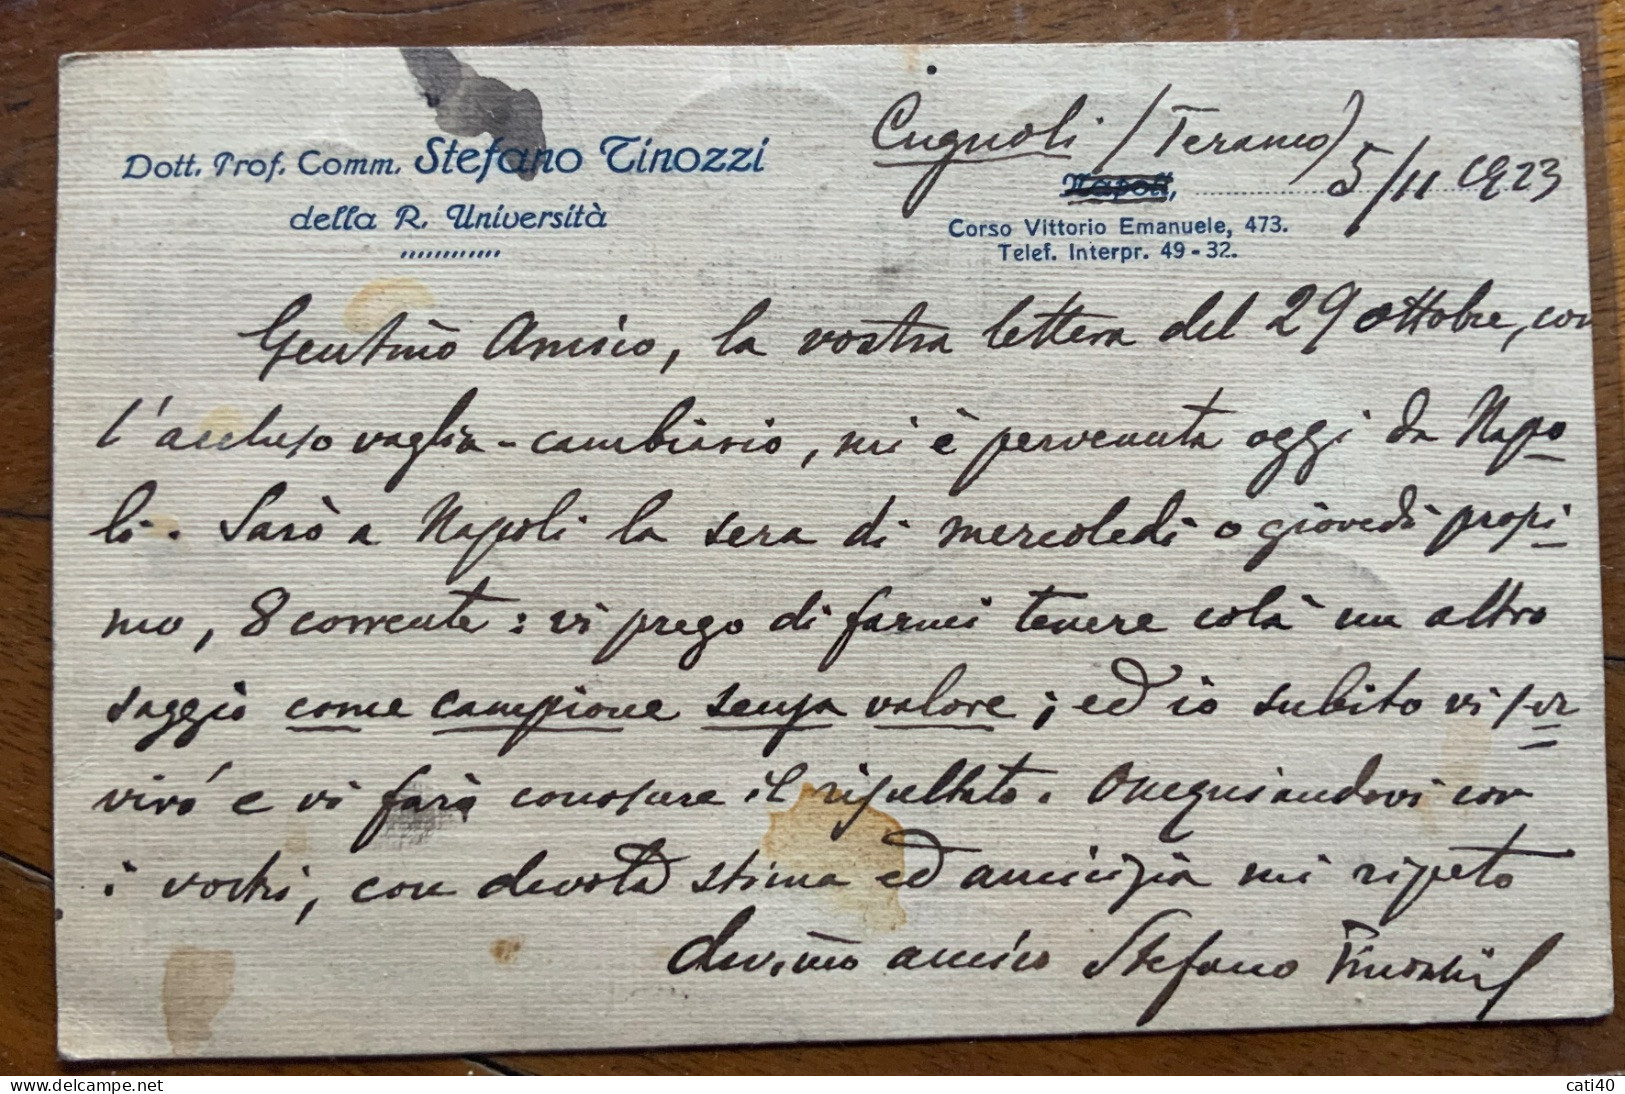 Dott. Prof. Comm. Stefano Tinozzi
della R. Università
Cugnoli (Teramo)
Napoli, 5/11 1923
Corso Vittorio Emanuele, 473.
Telef. Interpr. 49-32.
Gentmo Amico, la vostra lettera del 29 ottobre, con
l'accluso vaglia-cambiario, mi è pervenuta oggi da Napo
li. Sarò a Napoli la sera di mercoledì o giovedì prossi
mo, 8 corrente: vi prego di farmi tenere colà un altro
saggio come campione senza valore; ed io subito vi scri
virò e vi farò conoscere il risultato. Ossequiandovi con
i vostri, con devota stima ed amicizia mi ripeto
devmo amico Stefano Tinozzi
cati40